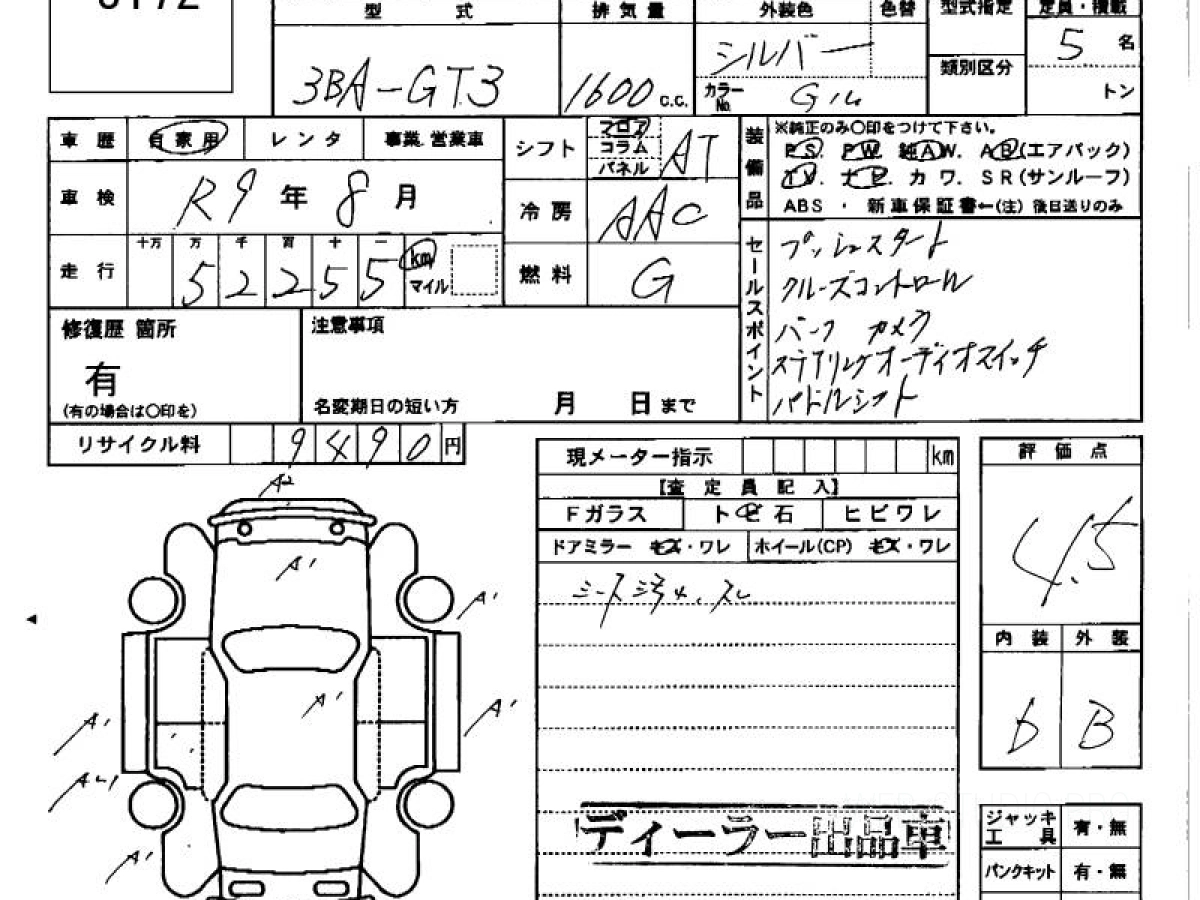 型 式 排気量 外装色 色替 型式指定 定員・積載
3BA-GT3 1600 c.c. シルバー 5 名
カラーNo. G1U 類別区分 トン
車歴 自家用 レンタ 事業.営業車
シフト フロア コラム パネル AT
車検 R9年 8月
冷房 AAC
走行 十万 万 千 百 十 一
52255 km マイル
燃料 G
装備品 ※純正のみ〇印をつけて下さい。
PS. PW. 純AW. AB(エアバック)
TV. ナビ. カワ. SR(サンルーフ)
ABS ・ 新車保証書←(注) 後日送りのみ
セールスポイント
プッシュスタート
クルーズコントロール
バーク カメラ
ステアリングオーディオスイッチ
パドルシフト
修復歴 箇所
有
(有の場合は〇印を)
注意事項
名変期日の短い方 月 日まで
リサイクル料 9490円
現メーター指示 km
【査定員記入】
Fガラス トビ石 ヒビワレ
ドアミラー キズ・ワレ ホイール(CP) キズ・ワレ
評価点
4.5
内装 外装
b B
A2
A1
A1
A1
A1
A1
A1
ディーラー出品車
ジャッキ工具 有・無
パンクキット 有・無